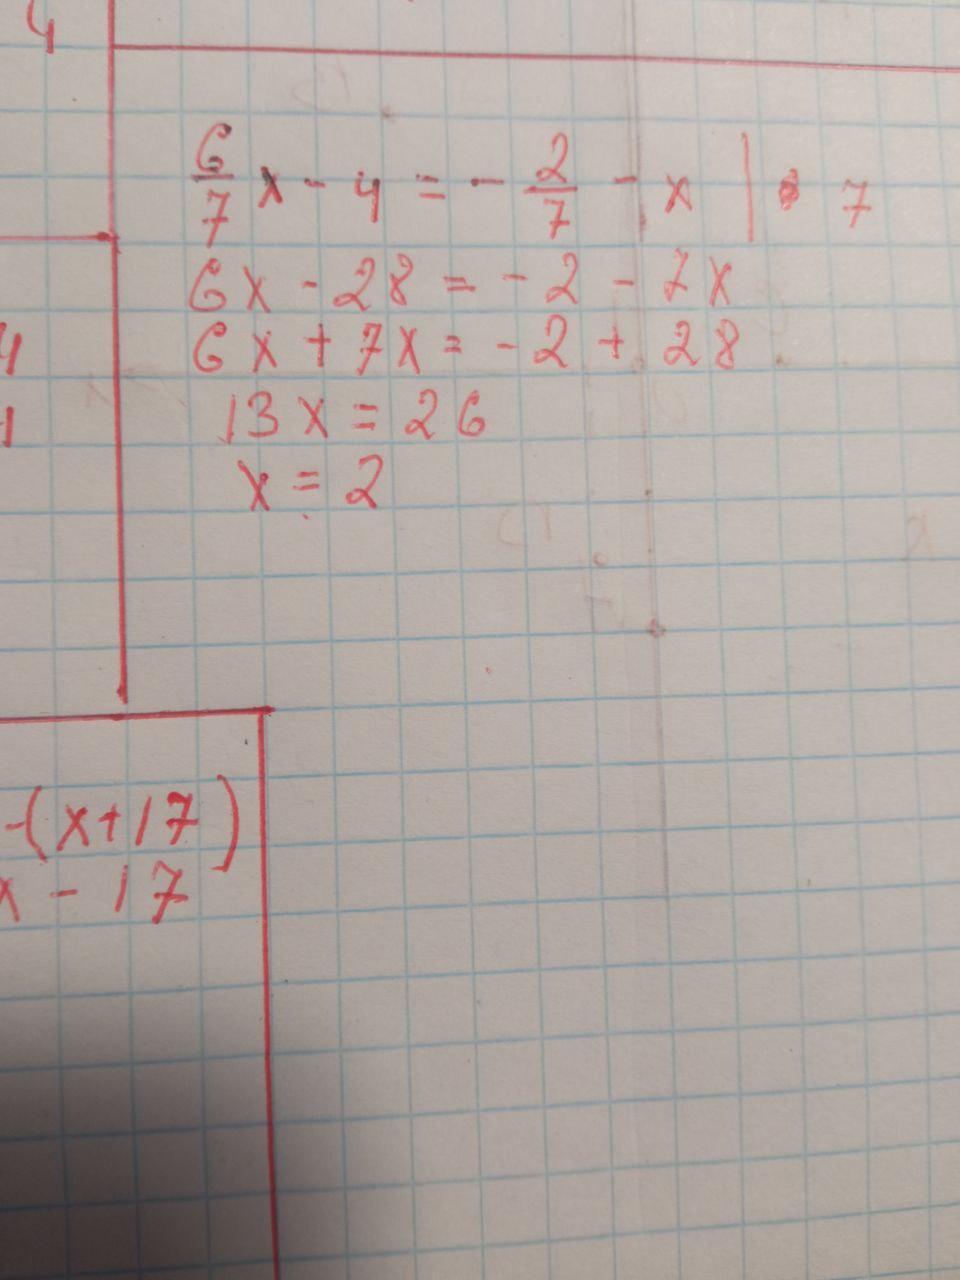 4
6/7 x - 4 = - 2/7 - x | • 7
6x - 28 = - 2 - 7x
6x + 7x = - 2 + 28
13x = 26
x = 2
4
1
-(x+17)
x - 17